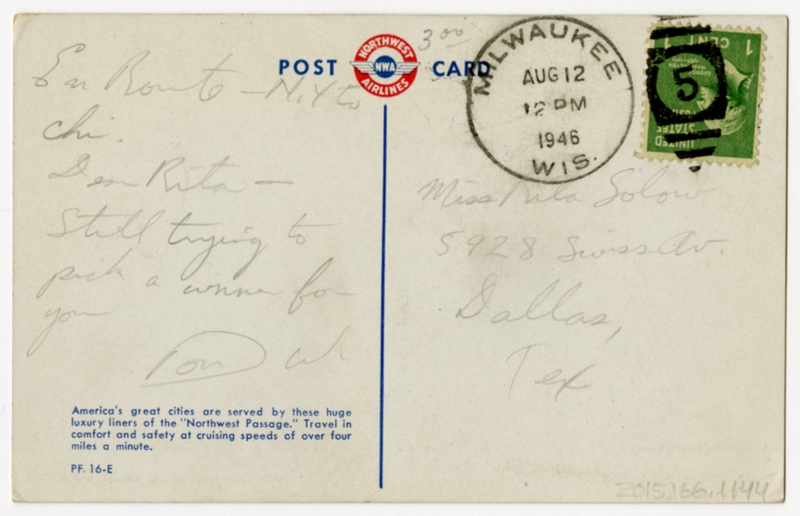 POST CARD
NORTHWEST
NWA
AIRLINES
3 00
MILWAUKEE
AUG 12
12 PM
1946
WIS.
5
UNITED
STATES
1 CENT 1
En Route - N.Y to
chi.
Dear Rita -
Still trying to
pick a winner for
you
Miss Rita Solow
5928 Swiss Av.
Dallas,
Tex
America's great cities are served by these huge
luxury liners of the "Northwest Passage." Travel in
comfort and safety at cruising speeds of over four
miles a minute.
PF. 16-E
2015.166.1144